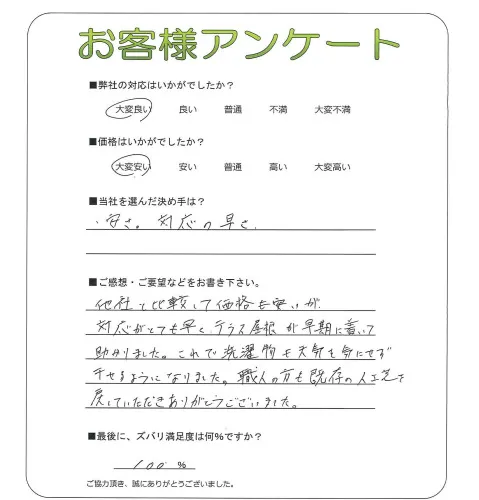 お客様アンケート
■弊社の対応はいかがでしたか？
大変良い 良い 普通 不満 大変不満
■価格はいかがでしたか？
大変安い 安い 普通 高い 大変高い
■当社を選んだ決め手は？
・安さ。対応の早さ.
■ご感想・ご要望などをお書き下さい。
他社と比較して価格も安いが
対応がとても早く、テラス屋根が早期に着いて
助かりました。これで洗濯物も天気を気にせず
干せるようになりました。職人の方も既存の人工芝を
戻していただきありがとうございました。
■最後に、ズバリ満足度は何%ですか？
100 %
ご協力頂き、誠にありがとうございました。